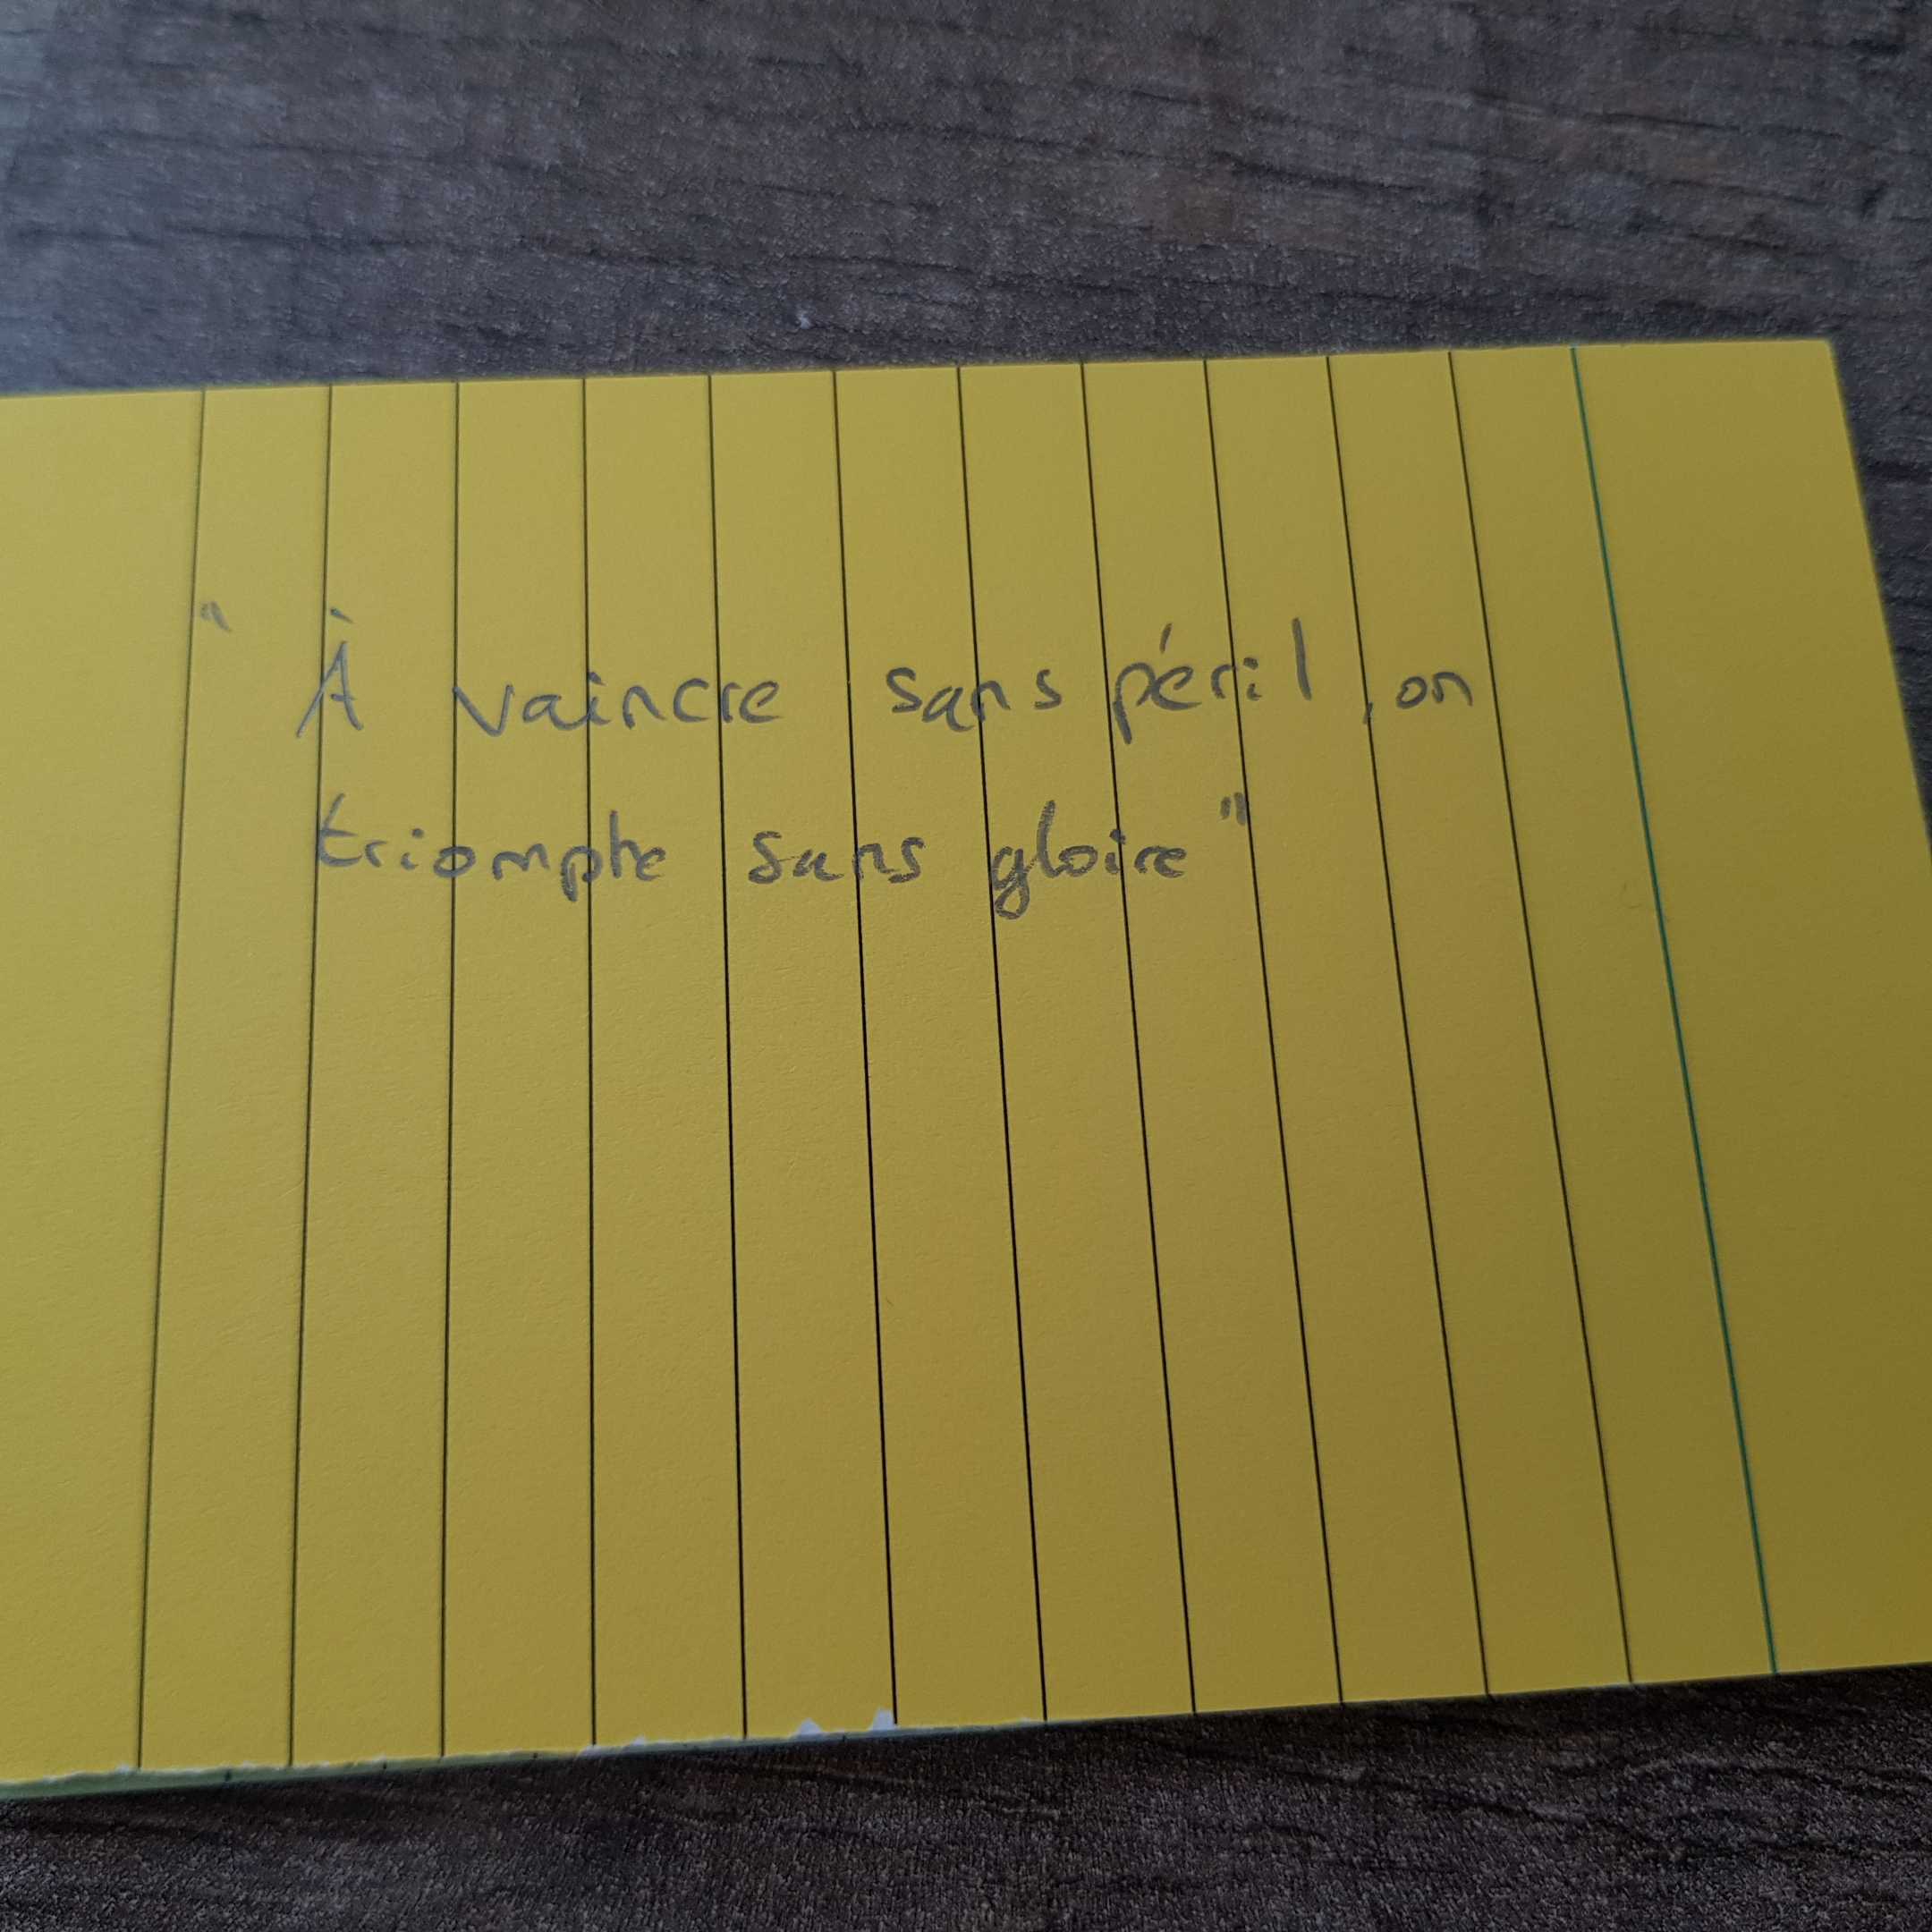 " À vaincre sans péril, on
triomphe sans gloire"